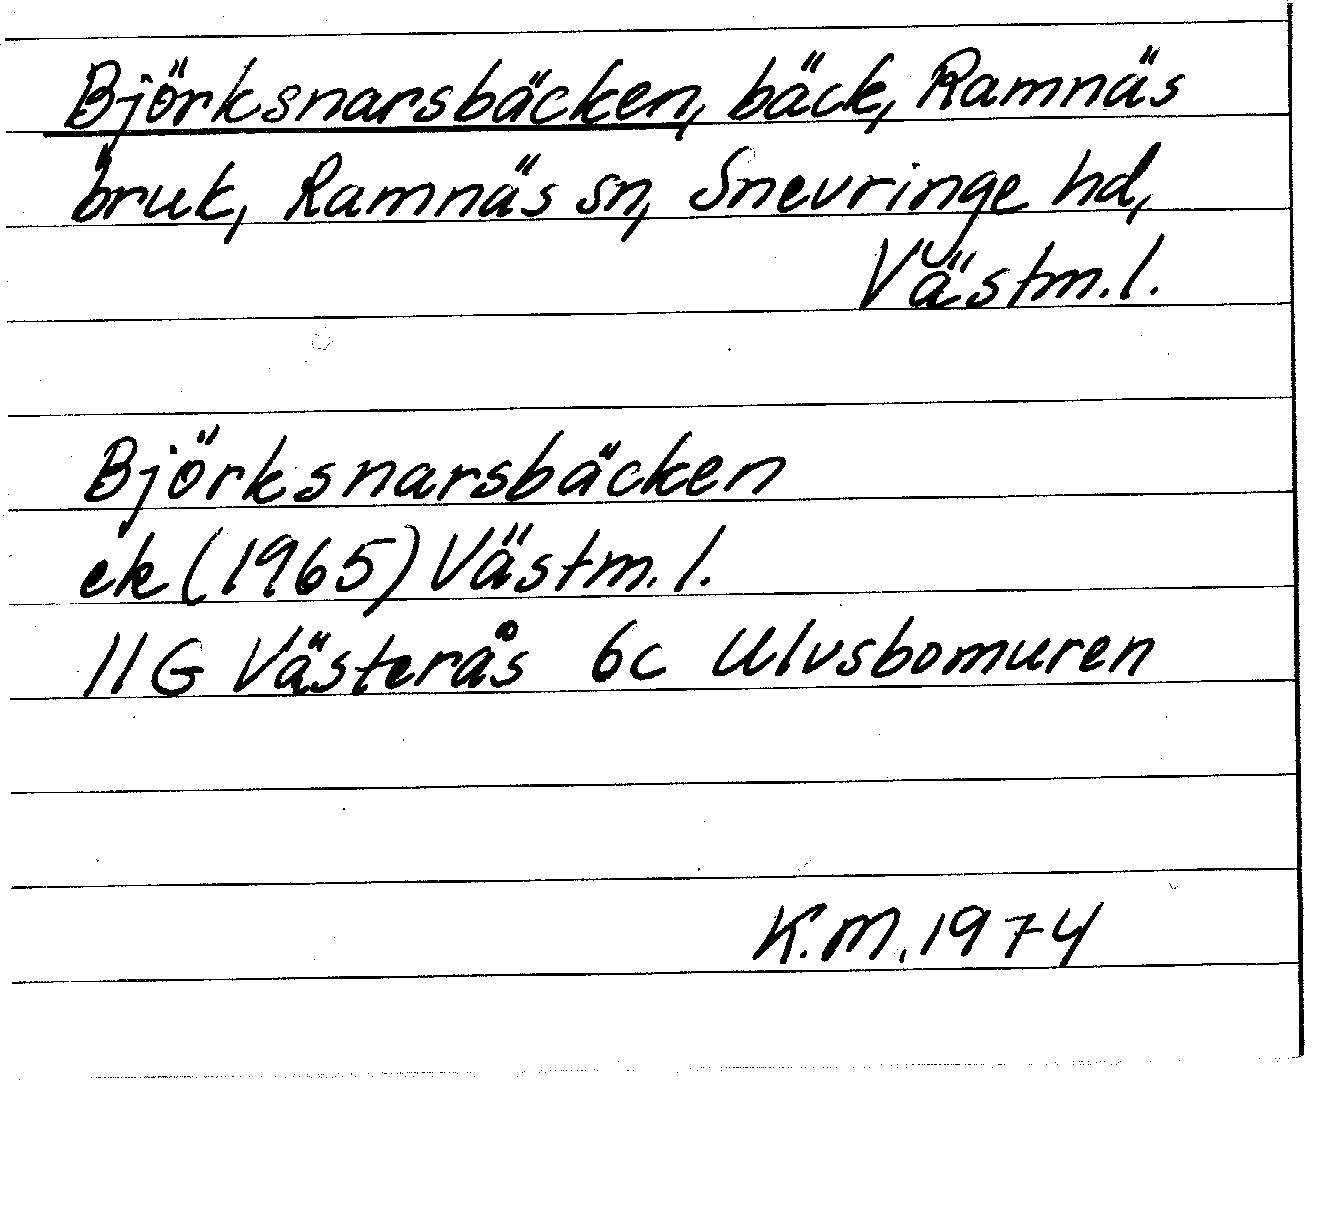 Björksnarsbäcken, bäck, Ramnäs
bruk, Ramnäs sn, Snevringe hd,
Västm. l.
Björksnarsbäcken
ek (1965) Västm. l.
11G Västerås 6c Ulvsbomuren
K.M. 1974